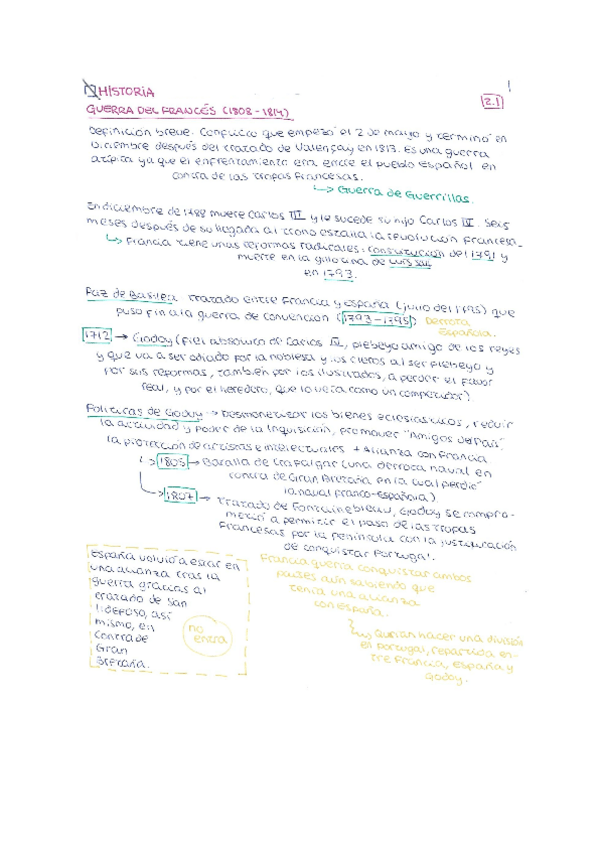 HISTORIA
1
2.1
GUERRA DEL FRANCÉS (1808-1814)
Definición breve: Conflicto que empezó el 2 de mayo y terminó en
Diciembre después del tratado de Valençay en 1813. Es una guerra
atípica ya que el enfrentamiento era entre el pueblo Español en
contra de las tropas francesas.
↳ Guerra de Guerrillas.
En diciembre de 1788 muere Carlos III y le sucede su hijo Carlos IV. Seis
meses después de su llegada al trono estalla la revolución francesa.
↳ Francia tiene unas reformas radicales: constitución del 1791 y
muerte en la guillotina de Luis
en 1793.
Paz de Basilea tratado entre Francia y España (julio del 1795) que
puso fin a la guerra de convención (1793-1795) Derrota
Española.
1712 → Godoy (fiel absoluto de Carlos IV, plebeyo amigo de los reyes
y que va a ser odiado por la nobleza y los cleros al ser plebeyo y
por sus reformas, también por los ilustrados, a perder el favor
real, y por el heredero, que lo veía como un competidor)
Políticas de Godoy → Desmonetizar los bienes eclesiásticos, reducir
la actividad y poder de la Inquisición, promover "Amigos del País"
la protección de artistas e intelectuales + alianza con Francia
↳ 1805 → Batalla de trafalgar (una derrota naval en
contra de Gran Bretaña en la cual perdió
la naval franco-Española).
↳ 1807 → tratado de Fontainebleau, Godoy se compro-
metió a permitir el paso de las tropas
francesas por la península con la justificación
de conquistar Portugal.
España volvió a estar en
una alianza tras la
guerra gracias al
tratado de San
Ildefoso, así
mismo, en
contra de
Gran
Bretaña.
no
entra
Francia quería conquistar ambos
países aún sabiendo que
tenía una alianza
con España.
↳ Querían hacer una división
en Portugal, repartida en-
tre Francia, España y
Godoy.